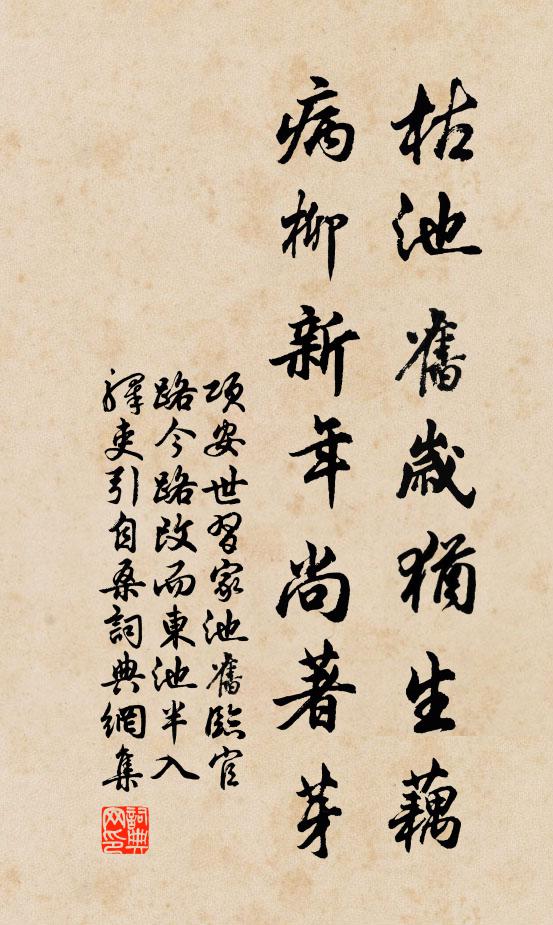 枯池舊歲猶生藕
病柳新年尚著芽
項安世習家池舊臨官
路今路改而東池半入
驛吏引自桑詞典網集
詞典网印